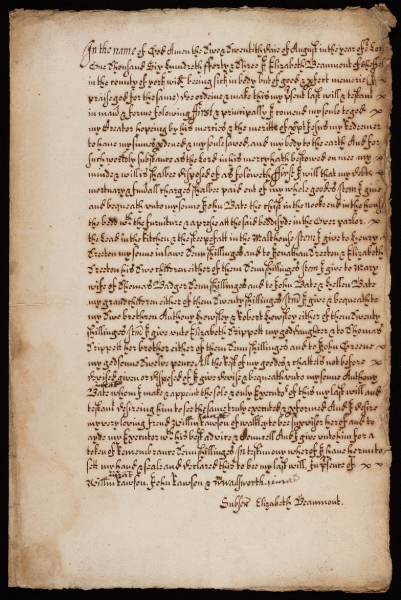 In the name of God Amen the Two & Twentith daie of August in the year of
One Thousand Six hundreth ffourty & Three I Elizabeth Beaumont of
in the county of york widd: being sick in body but of good & pfect memorie
praise god for the same) doe ordeine & make this my psent last will & testamt
in maner & forme folowing ffirst & principally I comend my soule to god
my Creator hoping by his mercies & the meritts of Jesus my Redeemer
to have my sinnes & my soule saved and my body to the earth And for
such worldly substance as the Lord in his mercy hath bestowed on mee my
minde & will is shalbe disposed of as foloweth ffirst I will that my debts
mortuary & funerall charges shalbe paid out of my whole goods Itm I give
and bequeath unto my sonne John Bate the chist in the nooke end in the house
the bedd wth the furniture & a presse att the said bedd side in the Over parlor
the Lead in the kitchen & the steepefatt in the Malthouse Itm I give to Henry
Creeton my sonne in lawe Tenn shillinges and to Jonathan Creeton & Elizabeth
Creeton his two children either of them Tenn shillings Itm I give to Mary
wife of Thomas Badger Tenn shillinges and to John Bate & Hellen Bate
my grandchildren either of them Twenty shillinges Itm I give & bequeath to
my Two brethren Anthony Howsley & Robert Howsley either of them Twenty
shillinges Itm I give unto Elizabeth Trippett my goddaughter & to Thomas
Trippett her brother either of them Tenn shillinges and to John Greene
my godsonne Twelve pence All the rest of my goodes & chattels not before
devised given or disposed of I give devise & bequeath unto my sonne Anthony
Bate whom I make & appoint the sole & only Executor of this my last will and
testamt desiring him to see the same truly executed & pformed And I desire
my very loving frend Willm Rawson of walkley to bee supvisor hereof and to
ayde my Executor wth his best advice & councell And I give unto him for a
token of remembrance Tenn shillinges In testimony whereof I have hereunto
sett my hand & seale and declared this to bee my last will, In psence of
Willm Rawson, John Rawson & Wm Wadsworth
Elizabeth Beaumont.